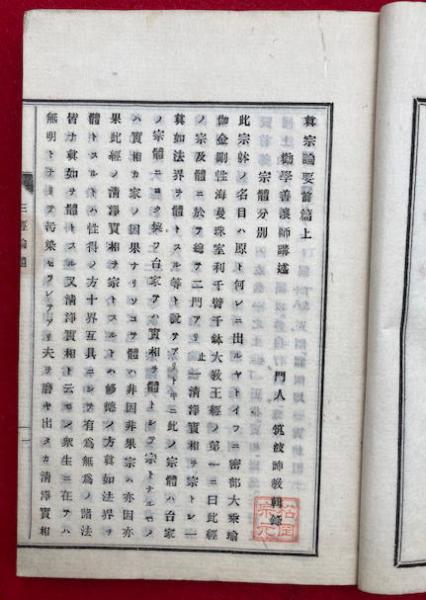 眞宗論要首篇上
勸學善讓師講述
門人 筑波師敎輯錄
宗體分別
此宗躰ノ名目ハ原ト何レニ出ルヤトイフニ密部大乘瑜
伽金剛性海曼珠室利千臂千鉢大敎王經ノ第一ニ曰此經
ノ宗及體ニ於テ總ヲ二門アリ止一清淨實相ヲ宗トレ一
眞如法界ヲ體トスル等ト說
ノ宗體ニヨク契フ台家ハ實相ヲ體トシテ宗ト
ハ實相カ家ノ因果ナリソコテ體ハ非因非果宗ハ亦因亦
果此經ノ清淨實相ヲ宗トスルトハ修德ノ方眞如法界ヲ
體トスルトハ性得ノ方十界互具ニシテ有爲無爲ノ諸法
皆ナ眞如ヲ體トス又清淨實相ト云モノ衆生ニ在テハ
無明
夫ヲ磨ヤ出スカ清淨實相
三經論題
一